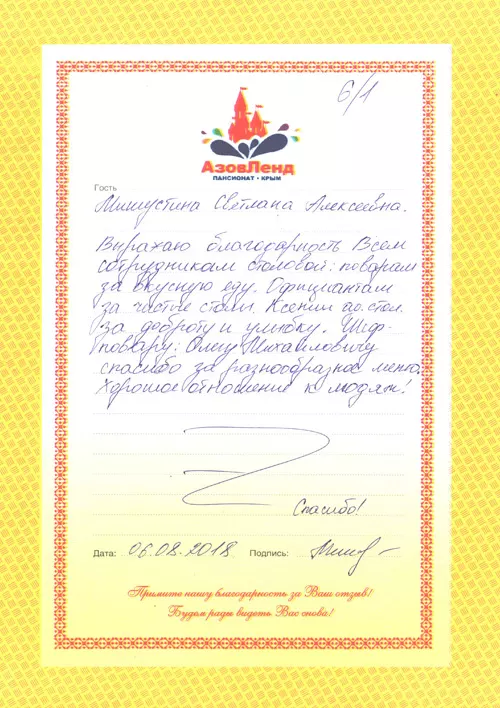 6/1
АзовЛенд
ПАНСИОНАТ • КРЫМ
Гость
Мишустина Светлана Алексеевна.
Выражаю благодарность Всем
сотрудникам столовой: поварам
за вкусную еду. Официантам
за чистые столы. Ксении ад. стол.
за доброту и улыбку. Шеф-
повару: Олегу Михайловичу
спасибо за разнообразное меню.
Хорошое отношение к людям!
Спасибо!
Дата: 06.08.2018 Подпись:
Примите нашу благодарность за Ваш отзыв!
Будем рады видеть Вас снова!